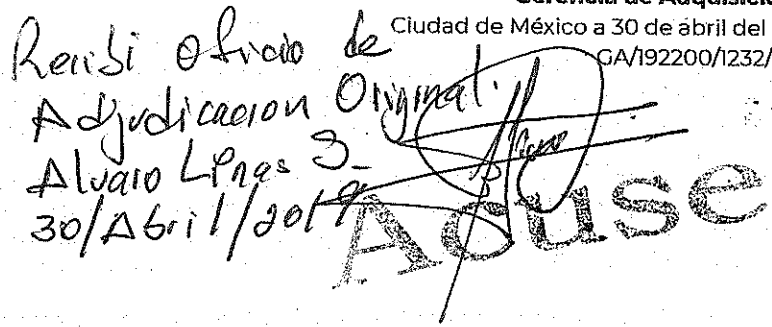 Gerencia de Adquisici
Ciudad de México a 30 de abril del
GA/192200/1232/
Recibi Oficio de
Adjudicacion Original.
Alvaro Liñas S_
30/Abril/2019
Acuse